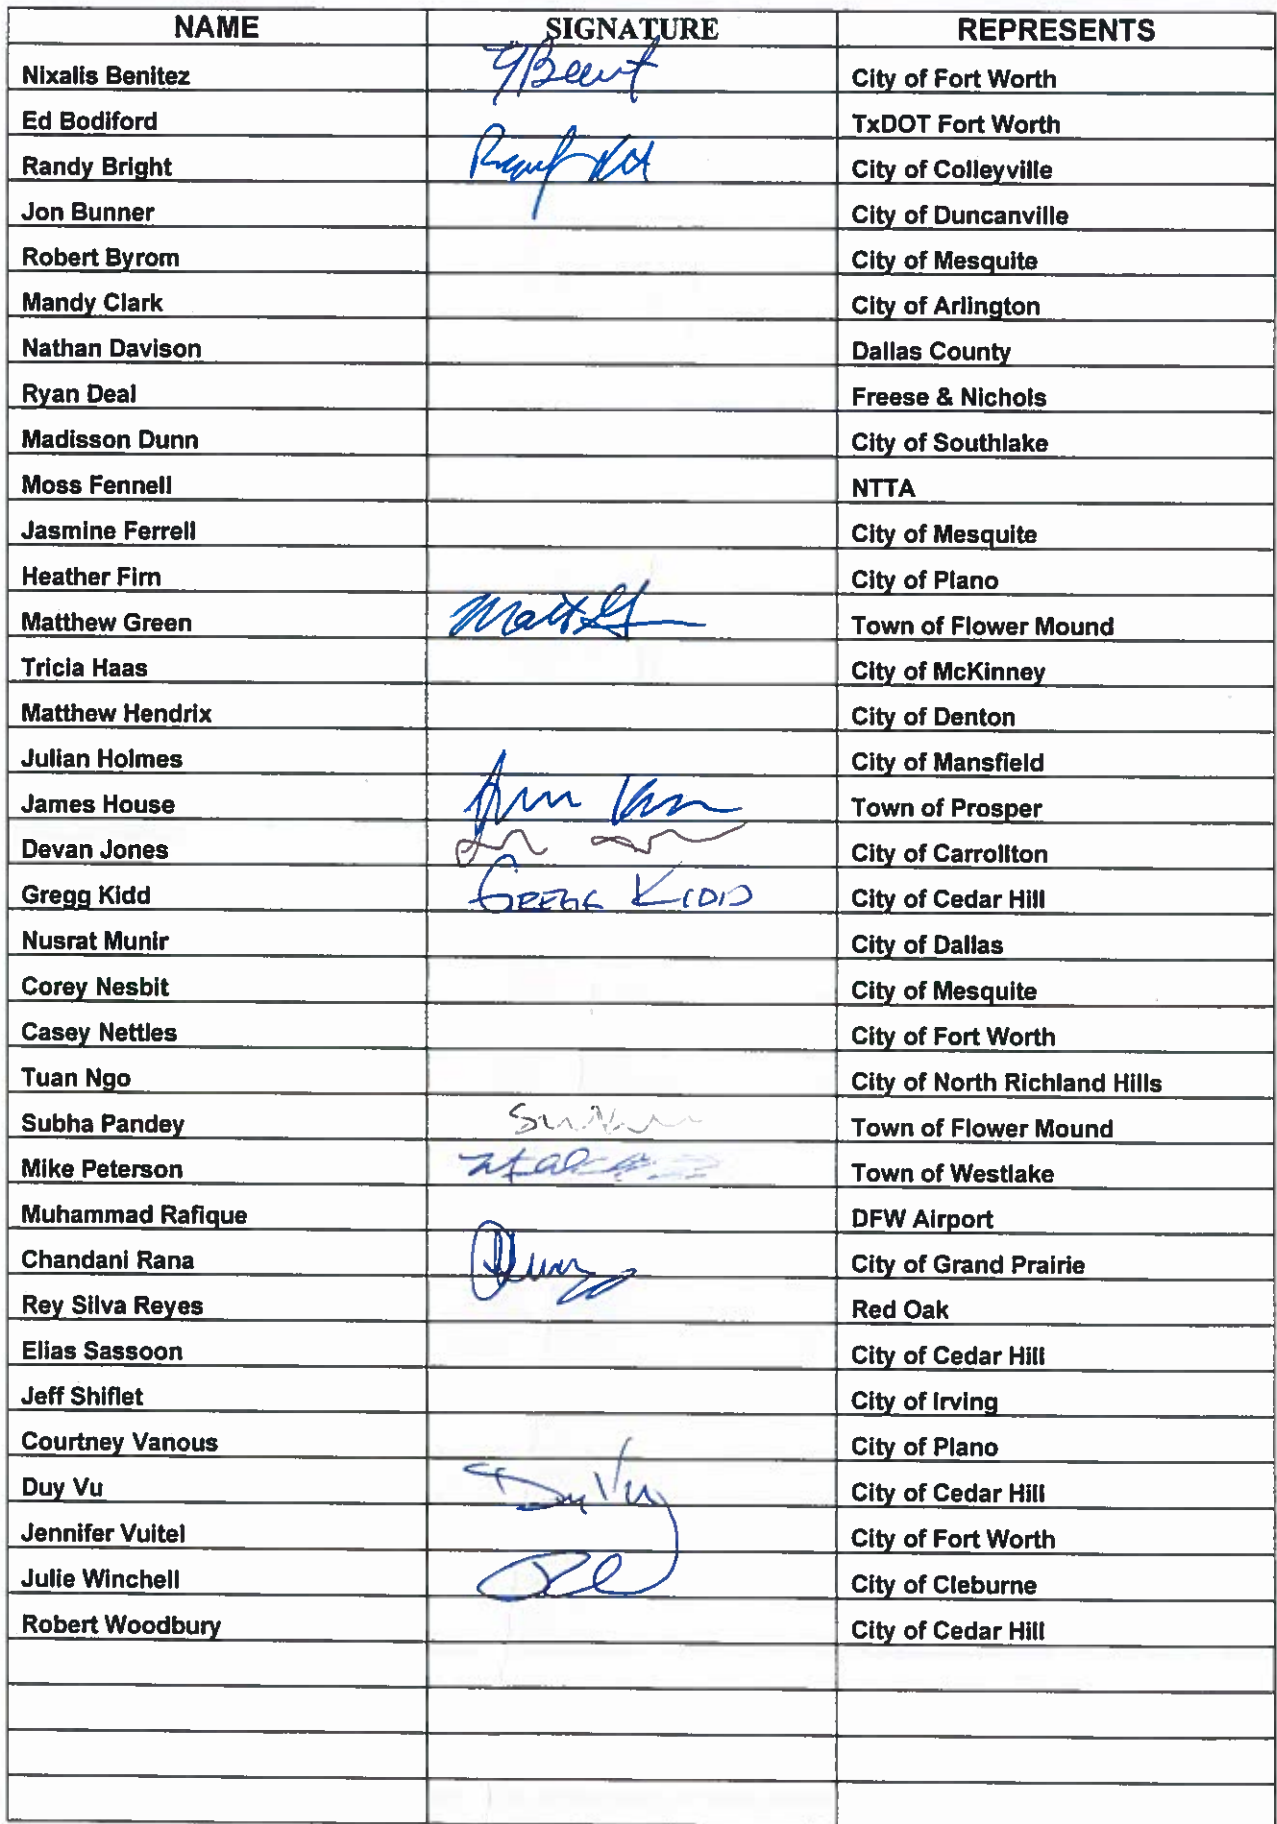 NAME SIGNATURE REPRESENTS
Nixalis Benitez City of Fort Worth
Ed Bodiford TxDOT Fort Worth
Randy Bright City of Colleyville
Jon Bunner City of Duncanville
Robert Byrom City of Mesquite
Mandy Clark City of Arlington
Nathan Davison Dallas County
Ryan Deal Freese & Nichols
Madisson Dunn City of Southlake
Moss Fennell NTTA
Jasmine Ferrell City of Mesquite
Heather Firn City of Plano
Matthew Green Town of Flower Mound
Tricia Haas City of McKinney
Matthew Hendrix City of Denton
Julian Holmes City of Mansfield
James House Town of Prosper
Devan Jones City of Carrollton
Gregg Kidd GREGG KIDD City of Cedar Hill
Nusrat Munir City of Dallas
Corey Nesbit City of Mesquite
Casey Nettles City of Fort Worth
Tuan Ngo City of North Richland Hills
Subha Pandey Town of Flower Mound
Mike Peterson Town of Westlake
Muhammad Rafique DFW Airport
Chandani Rana City of Grand Prairie
Rey Silva Reyes Red Oak
Elias Sassoon City of Cedar Hill
Jeff Shiflet City of Irving
Courtney Vanous City of Plano
Duy Vu Duy Vu City of Cedar Hill
Jennifer Vuitel City of Fort Worth
Julie Winchell City of Cleburne
Robert Woodbury City of Cedar Hill